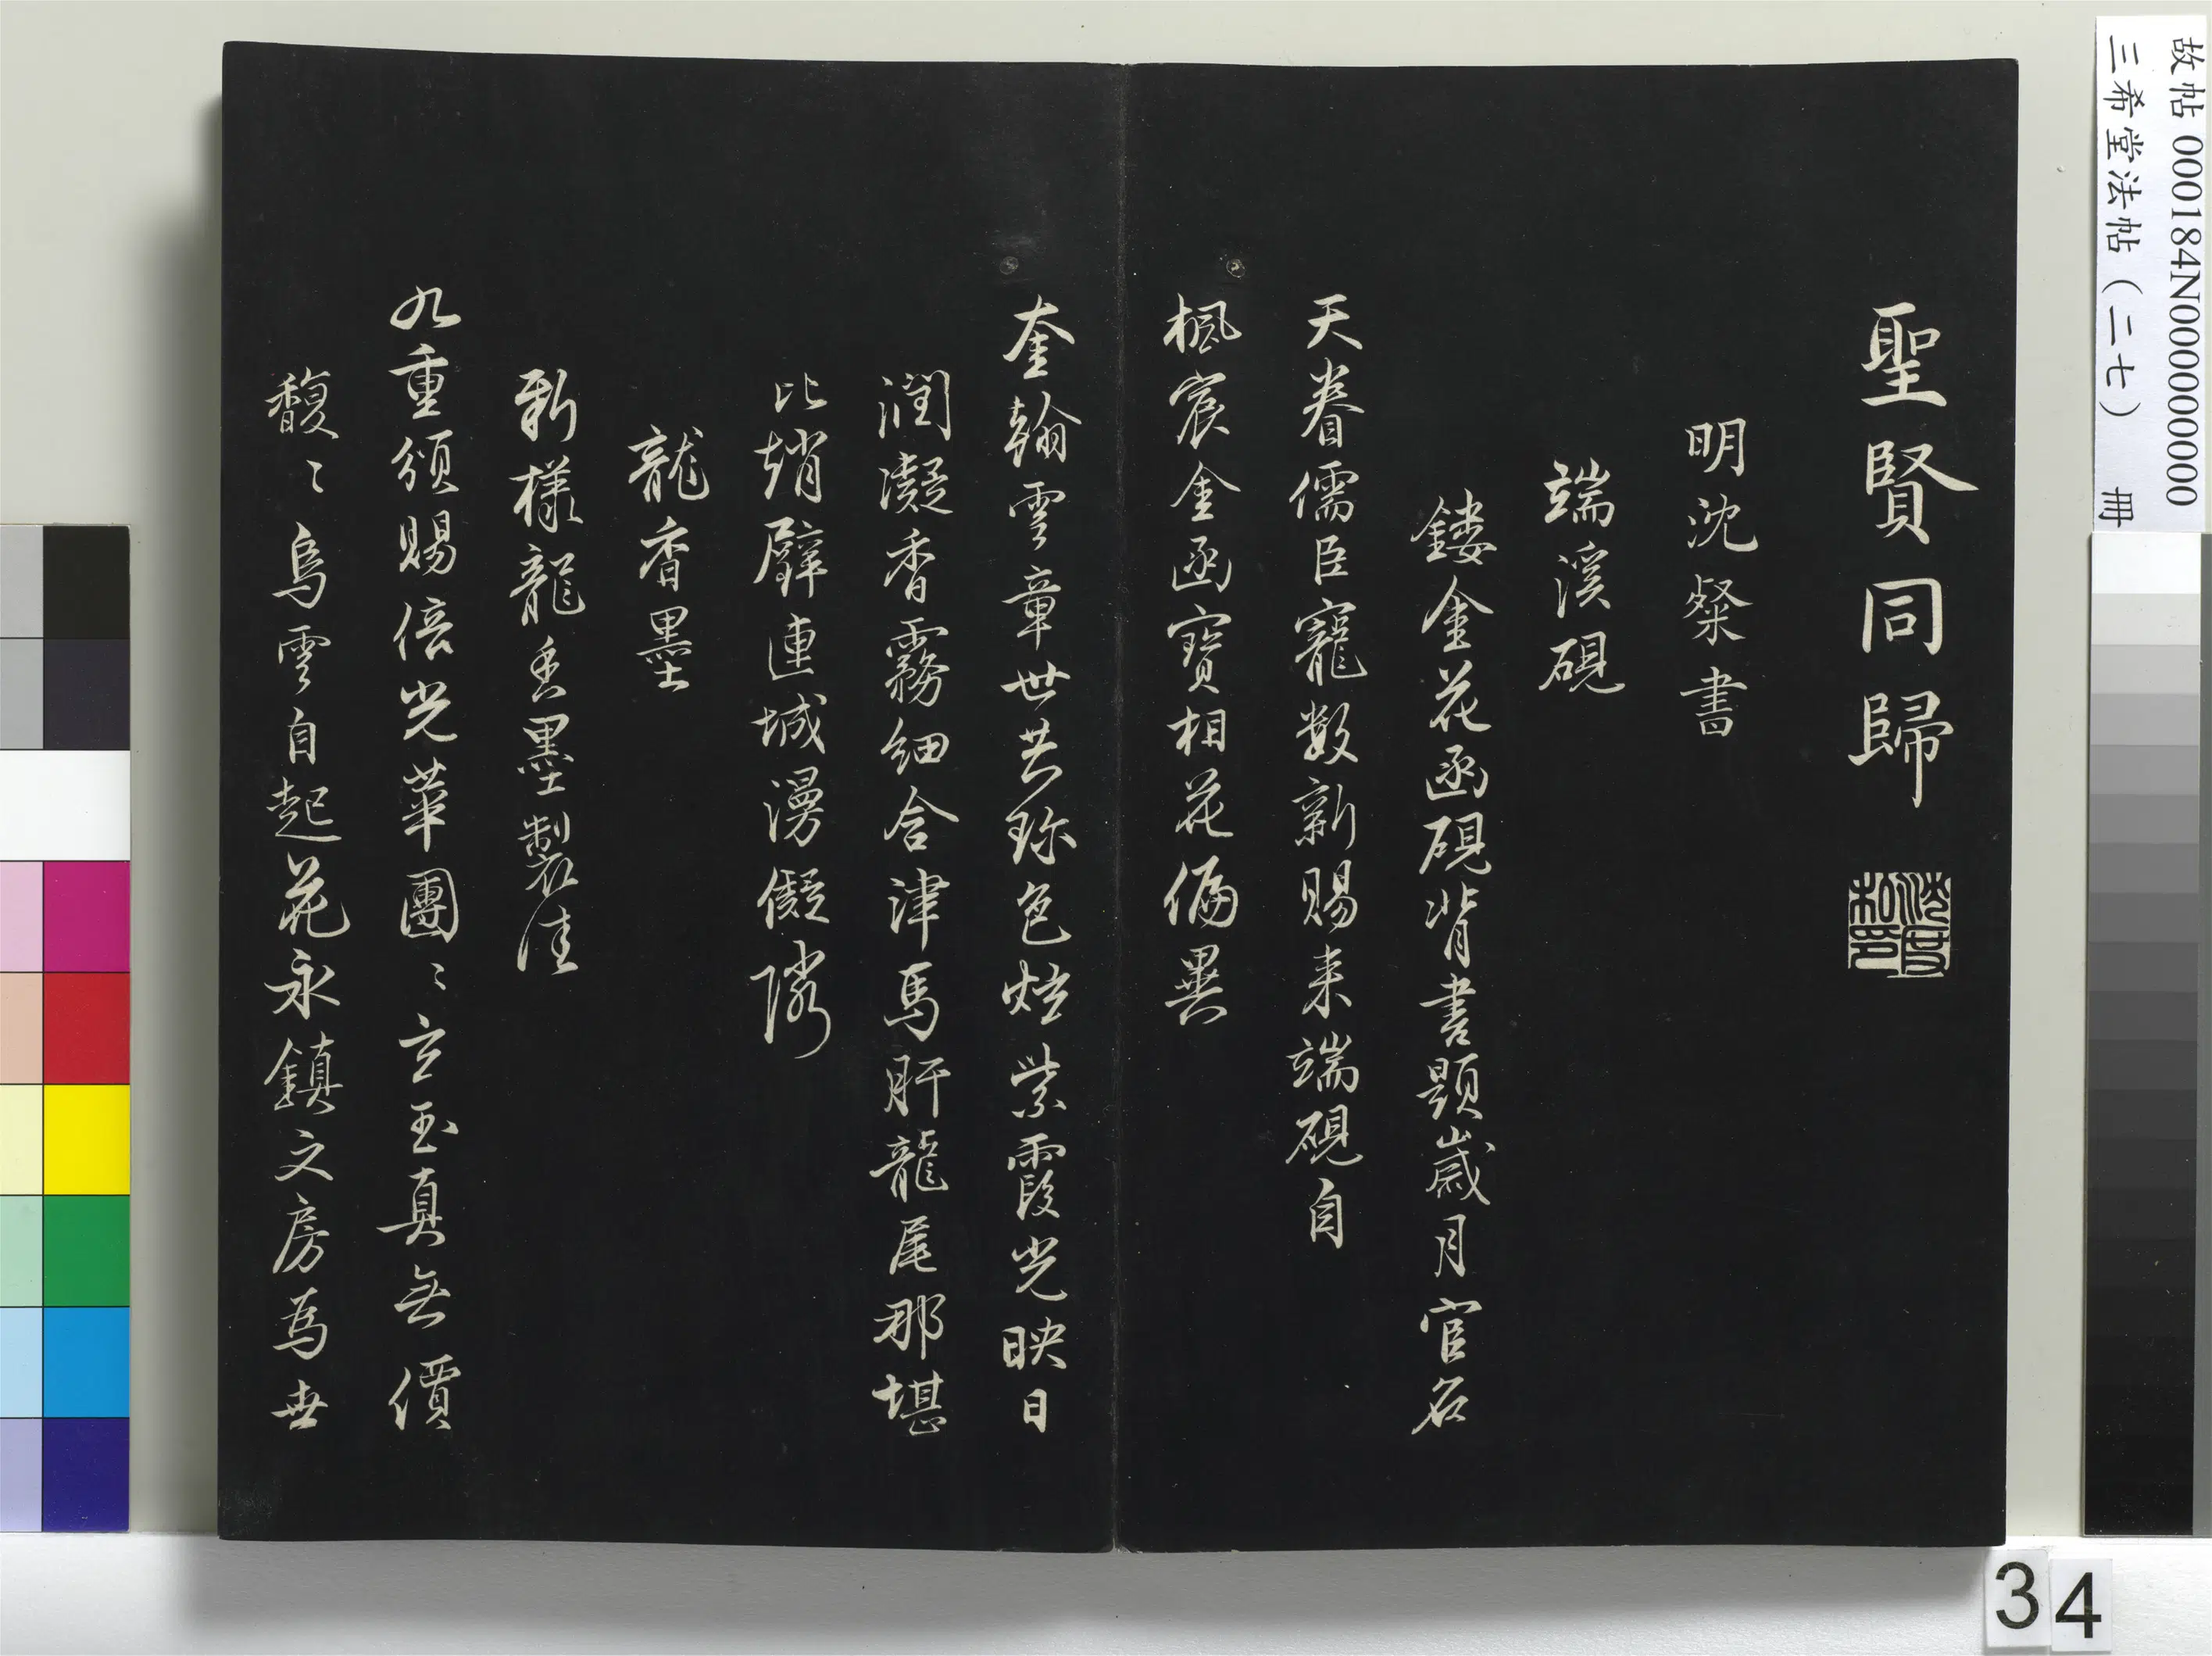 故帖000184N000000000
三希堂法帖（二七） 冊
聖賢同歸
沈度私印
明沈粲書
端溪硯
鏤金花函硯背書題歲月官名
天眷儒臣寵數新賜来端硯自
楓宸金函寶相花偏異
奎翰雲章世共珎色炫紫霞光映日
潤凝香霧細含津馬肝龍尾那堪
比趙璧連城漫儗隣
龍香墨
新樣龍香墨製佳
九重頒賜倍光華團〻立玉真無價
馥〻烏雲自起花永鎮文房為世
34